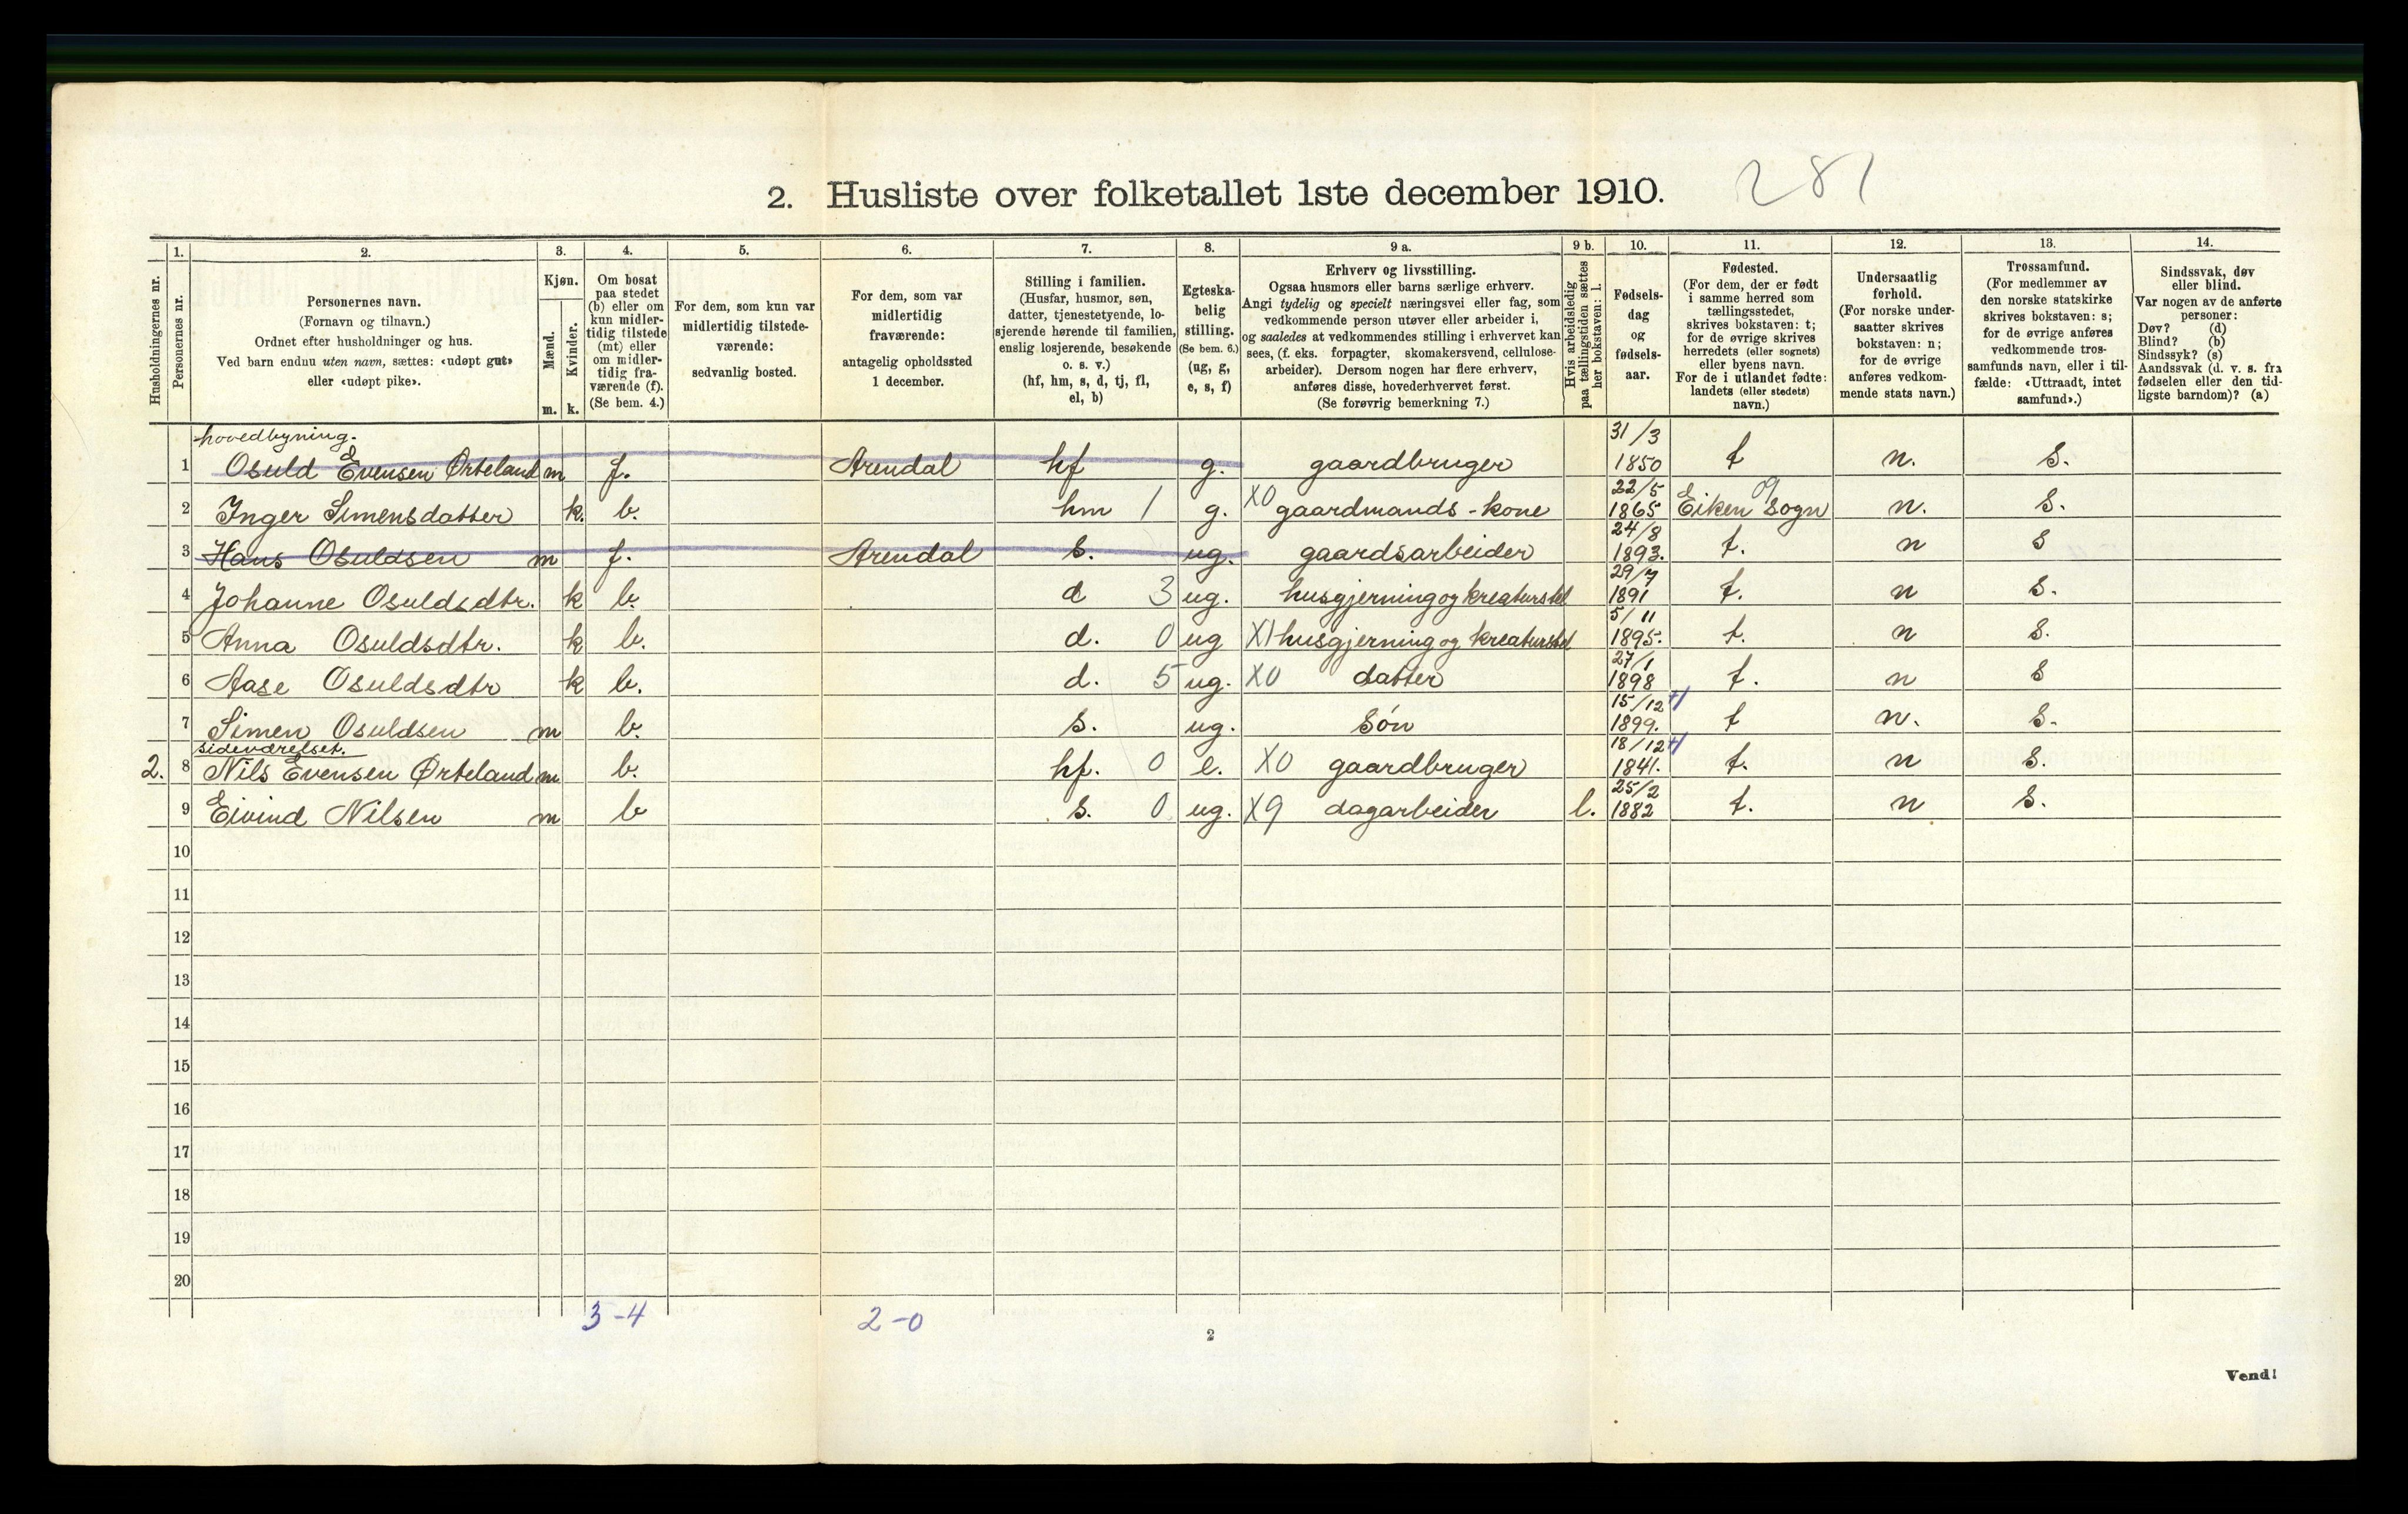 2. Husliste over folketallet 1ste december 1910. 281
Husholdningernes nr.
1. Personernes nr.
2. Personernes navn.
(Fornavn og tilnavn.)
Ordnet efter husholdninger og hus.
Ved barn endnu uten navn, sættes: «udøpt gut»
eller «udøpt pike».
3. Kjøn.
Mænd. m.
Kvinder. k.
4. Om bosat
paa stedet
(b) eller om
kun midler-
tidig tilstede
(mt) eller
om midler-
tidig fra-
værende (f).
(Se bem. 4.)
5. For dem, som kun var
midlertidig tilstede-
værende:
sedvanlig bosted.
6. For dem, som var
midlertidig
fraværende:
antagelig opholdssted
1 december.
7. Stilling i familien.
(Husfar, husmor, søn,
datter, tjenestetyende, lo-
sjerende hørende til familien,
enslig losjerende, besøkende
o. s. v.)
(hf, hm, s, d, tj, fl,
el, b)
8. Egteska-
belig
stilling.
(Se bem. 6.)
(ug, g,
e, s, f)
9 a. Erhverv og livsstilling.
Ogsaa husmors eller barns særlige erhverv.
Angi tydelig og specielt næringsvei eller fag, som
vedkommende person utøver eller arbeider i,
og saaledes at vedkommendes stilling i erhvervet kan
sees, (f. eks. forpagter, skomakersvend, cellulose-
arbeider). Dersom nogen har flere erhverv,
anføres disse, hovederhvervet først.
(Se forøvrig bemerkning 7.)
9 b. Hvis arbeidsledig
paa tællingstiden sættes
her bokstaven: l.
10. Fødsels-
dag
og
fødsels-
aar.
11. Fødested.
(For dem, der er født
i samme herred som
tællingsstedet,
skrives bokstaven: t;
for de øvrige skrives
herredets (eller sognets)
eller byens navn.
For de i utlandet fødte:
landets (eller stedets)
navn.)
12. Undersaatlig
forhold.
(For norske under-
saatter skrives
bokstaven: n;
for de øvrige
anføres vedkom-
mende stats navn.)
13. Trossamfund.
(For medlemmer av
den norske statskirke
skrives bokstaven: s;
for de øvrige anføres
vedkommende tros-
samfunds navn, eller i til-
fælde: «Uttraadt, intet
samfund».)
14. Sindssvak, døv
eller blind.
Var nogen av de anførte
personer:
Døv? (d)
Blind? (b)
Sindssyk? (s)
Aandssvak (d. v. s. fra
fødselen eller den tid-
ligste barndom)? (a)
hovedbyning.
1 Osuld Evensen Ørteland m f. Arendal hf g. gaardbruger 31/3 1850 t n. S.
2 Inger Simensdatter k. b. hm 1 g. X0 gaardmands-kone 22/5 1865 Eiken sogn 09 n. S.
3 Hans Osuldsen m f. Arendal s. ug. gaardsarbeider 24/8 1893. t. n S
4 Johanne Osuldsdtr. k b. d 3 ug. husgjerning og kreaturstel 29/7 1891 t. n S.
5 Anna Osuldsdtr. k b. d. 0 ug X1 husgjerning og kreaturstel 5/11 1895. t. n S.
6 Aase Osuldsdtr k b. d. 5 ug. X0 datter 27/1 1898 t. n S
7 Simen Osuldsen m b. s. ug. Søn 15/12 1899. t n. S.
sideværelset.
2. 8 Nils Evensen Ørteland m b. hf. 0 e. X0 gaardbruger 18/12 1841. t. n S.
9 Eivind Nilsen m b s. 0 ug. X9 dagarbeider l. 25/2 1882 t. n S.
10
11
12
13
14
15
16
17
18
19
20
3-4 2-0
2
Vend!